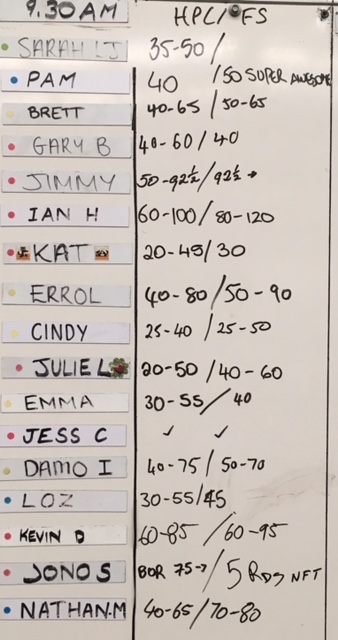 9.30 AM HPC/FS
SARAH LJ 35-50/
PAM 40 /50 SUPER AWESOME
BRETT 40-65 / 50-65
GARY B 40-60 / 40
JIMMY 50-92½/92½→
IAN H 60-100/80-120
KAT 20-45/30
ERROL 40-80/50-90
CINDY 25-40 / 25-50
JULIE L 20-50 / 40-60
EMMA 30-55/40
JESS C ✓ ✓
DAMO I 40-75 / 50-70
LOZ 30-55/45
KEVIN D 60-85 / 60-95
JONO S BOR 75→/5 RDS NFT
NATHAN.M 40-65/70-80